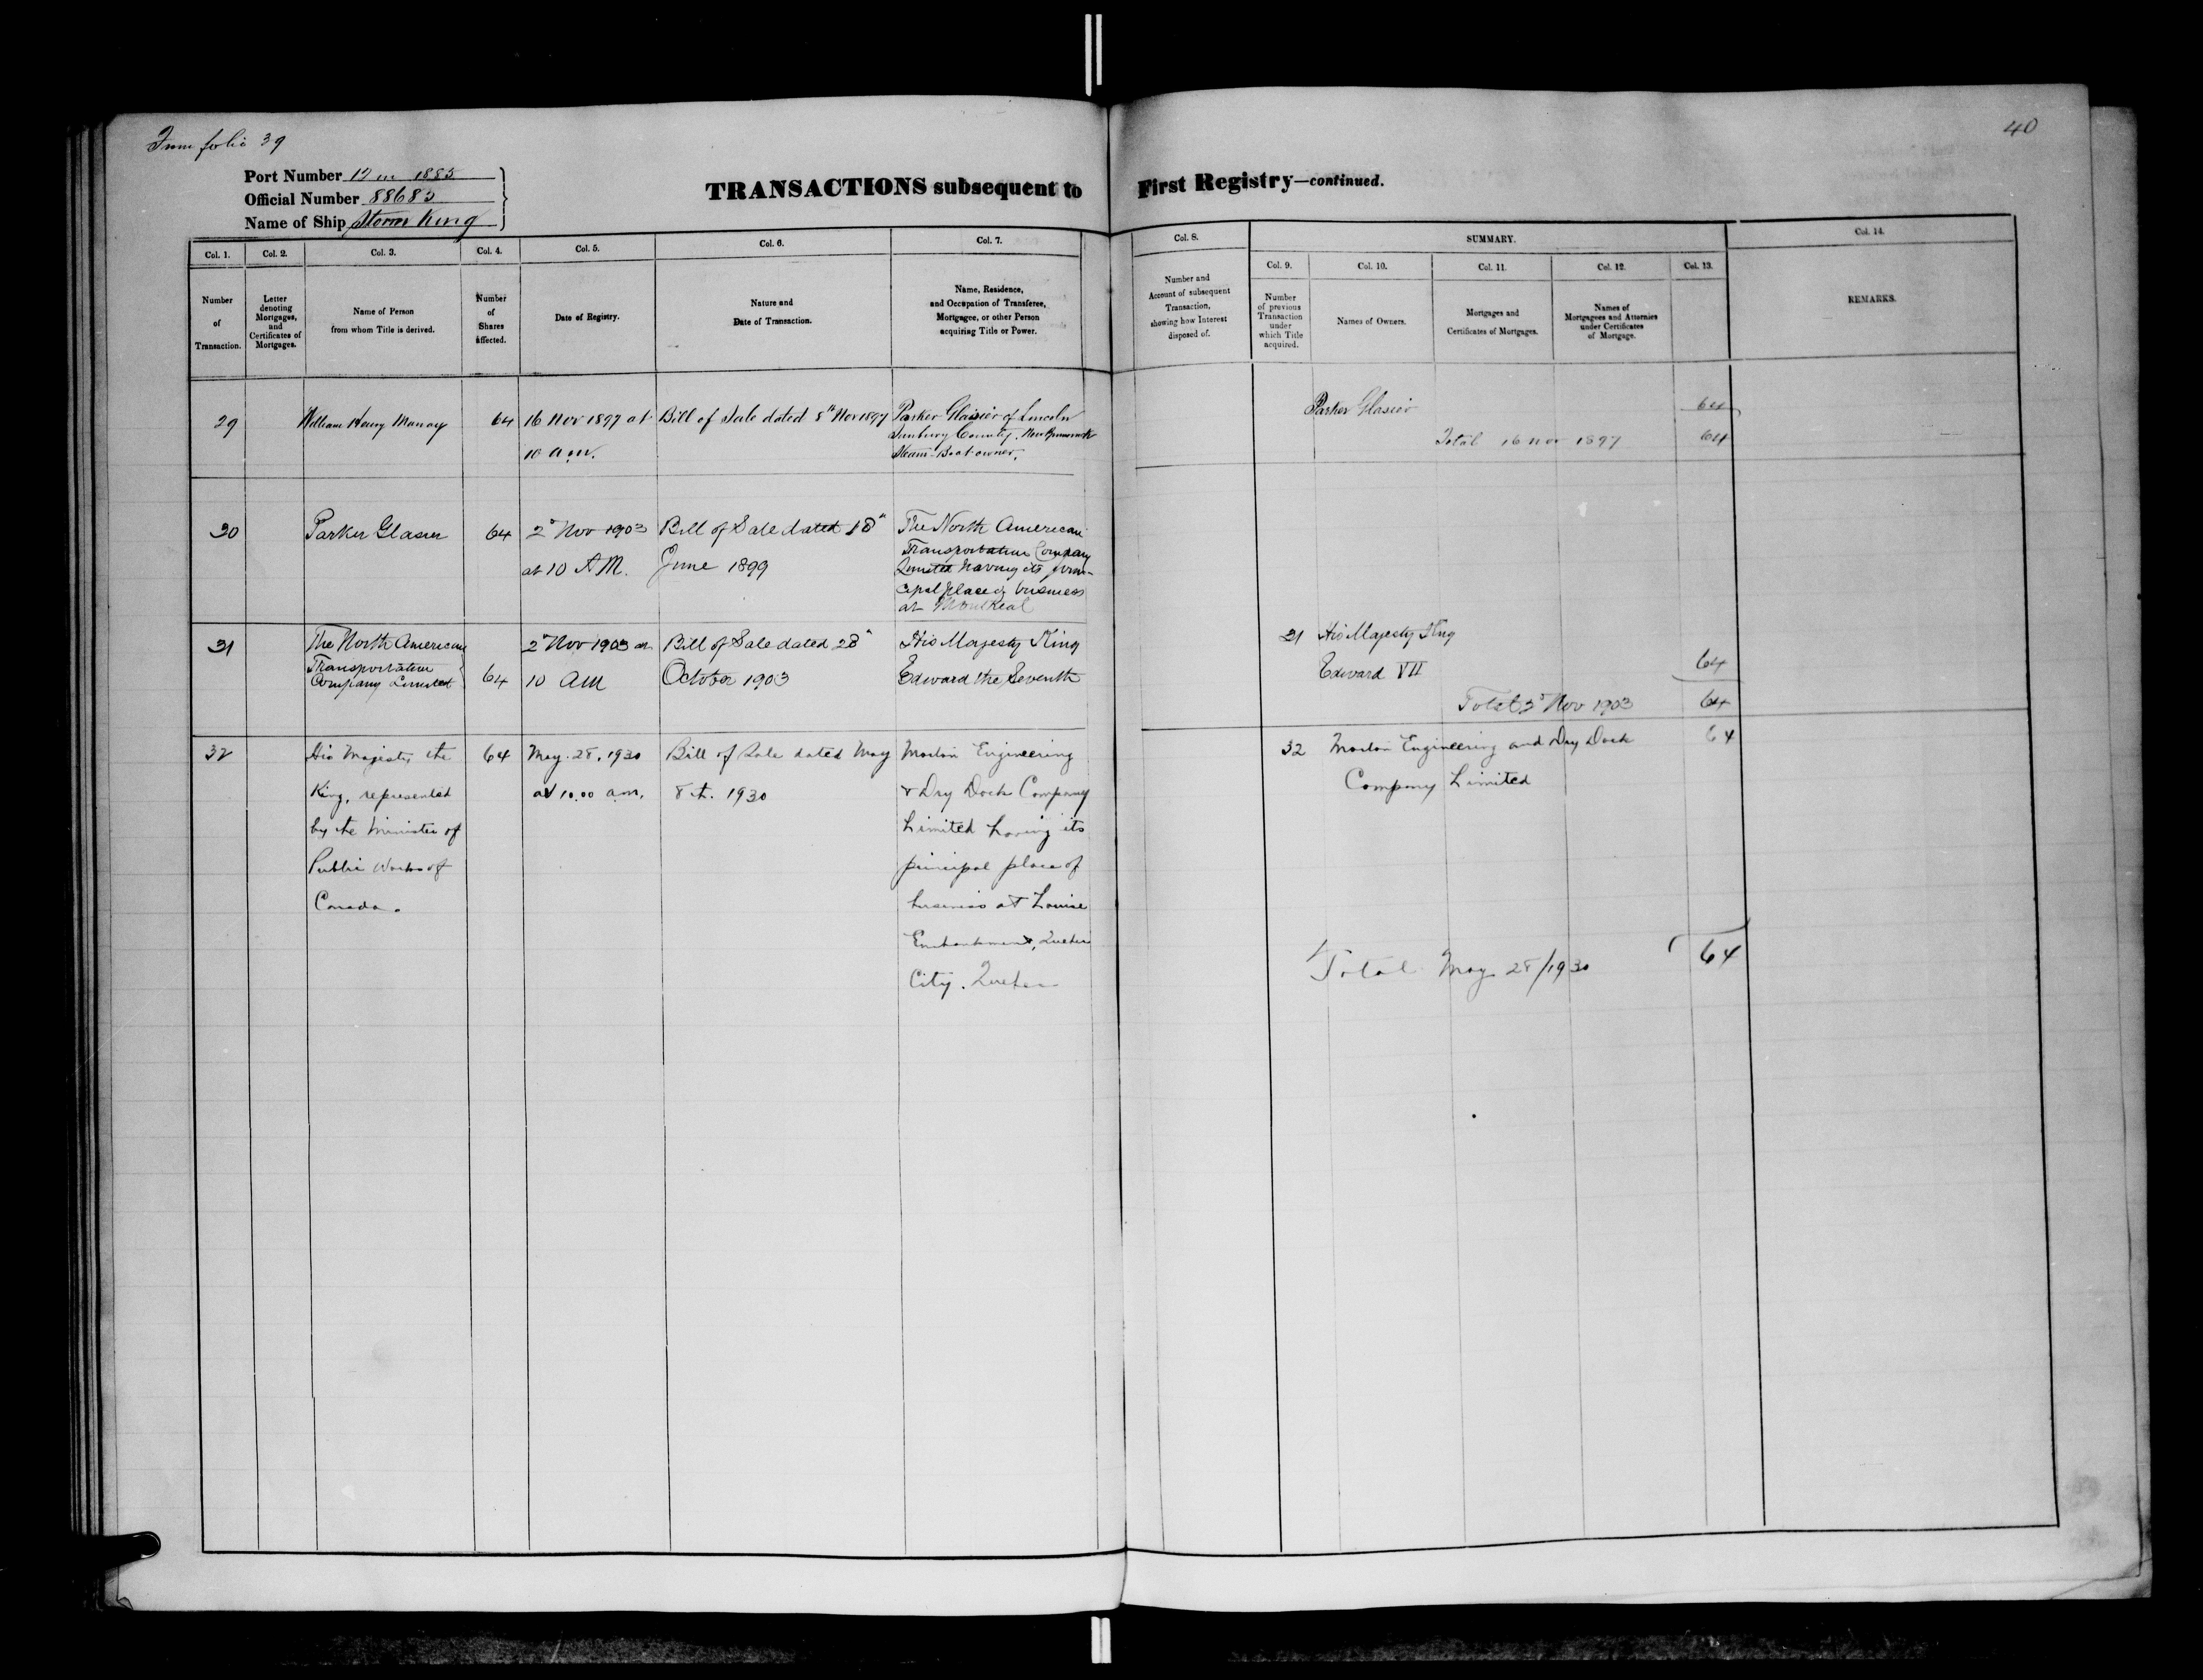 From folio 39
40
Port Number 12 in 1885
Official Number 88683
Name of Ship Storm King
TRANSACTIONS subsequent to First Registry—continued.
Col. 1.
Number
of
Transaction.
Col. 2.
Letter
denoting
Mortgages,
and
Certificates of
Mortgages.
Col. 3.
Name of Person
from whom Title is derived.
Col. 4.
Number
of
Shares
affected.
Col. 5.
Date of Registry.
Col. 6.
Nature and
Date of Transaction.
Col. 7.
Name, Residence,
and Occupation of Transferee,
Mortgagee, or other Person
acquiring Title or Power.
Col. 8.
Number and
Account of subsequent
Transaction,
showing how Interest
disposed of.
SUMMARY.
Col. 9.
Number
of previous
Transaction
under
which Title
acquired.
Col. 10.
Names of Owners.
Col. 11.
Mortgages and
Certificates of Mortgages.
Col. 12.
Names of
Mortgagees and Attornies
under Certificates
of Mortgage.
Col. 13.
Col. 14.
REMARKS.
29
William Henry
64
16 Nov 1897 at
10 a.m.
Bill of Sale dated 8th Nov 1897
Parker Glasier of Lincoln
Sunbury County, New Brunswick
Steam-Boat owner.
Parker Glasier
64
Total 16 Nov 1897
64
30
Parker Glasier
64
2d Nov 1903
at 10 A.M.
Bill of Sale dated 18"
June 1899
The North American
Transportation Company
Limited having its prin-
cipal place of business
at Montreal
31
The North American
Transportation
Company Limited
64
2d Nov 1903 at
10 AM
Bill of Sale dated 28"
October 1903
His Majesty King
Edward the Seventh
31
His Majesty King
Edward VII
64
Total 2d Nov 1903
64
32
His Majesty the
King, represented
by the Minister of
Public Works of
Canada.
64
May 28, 1930
at 10.00 a.m.
Bill of Sale dated May
8th. 1930
Morton Engineering
& Dry Dock Company
Limited having its
principal place of
business at Louise
Embankment, Quebec
City. Quebec
32
Morton Engineering and Dry Dock
Company Limited
64
Total May 28/1930
64